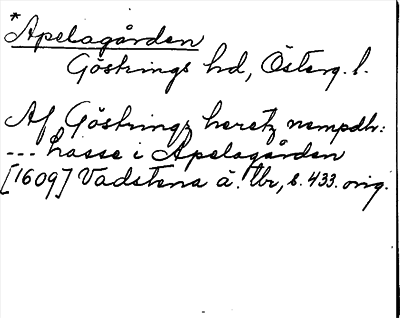 *Apelagården
Göstrings hd, Österg. l.
Af Göstrings heretz nempdh:
--- Lasse i Apelagården
[1609] Vadstena ä. tbr, s. 433. orig.